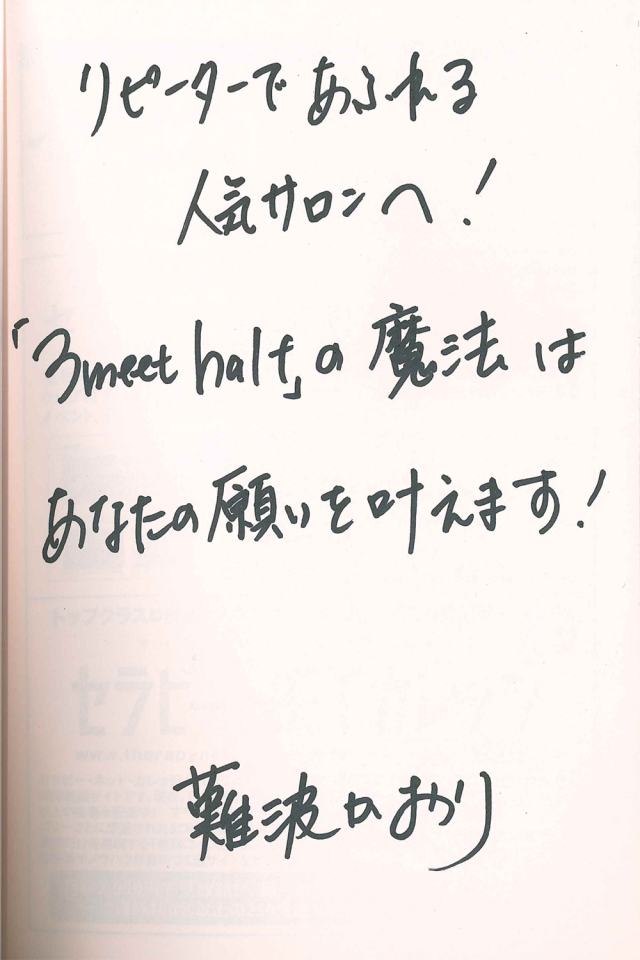 リピーターであふれる
人気サロンへ!
「3meet half」の魔法は
あなたの願いを叶えます!
トップクラス
セラピ
難波かおり